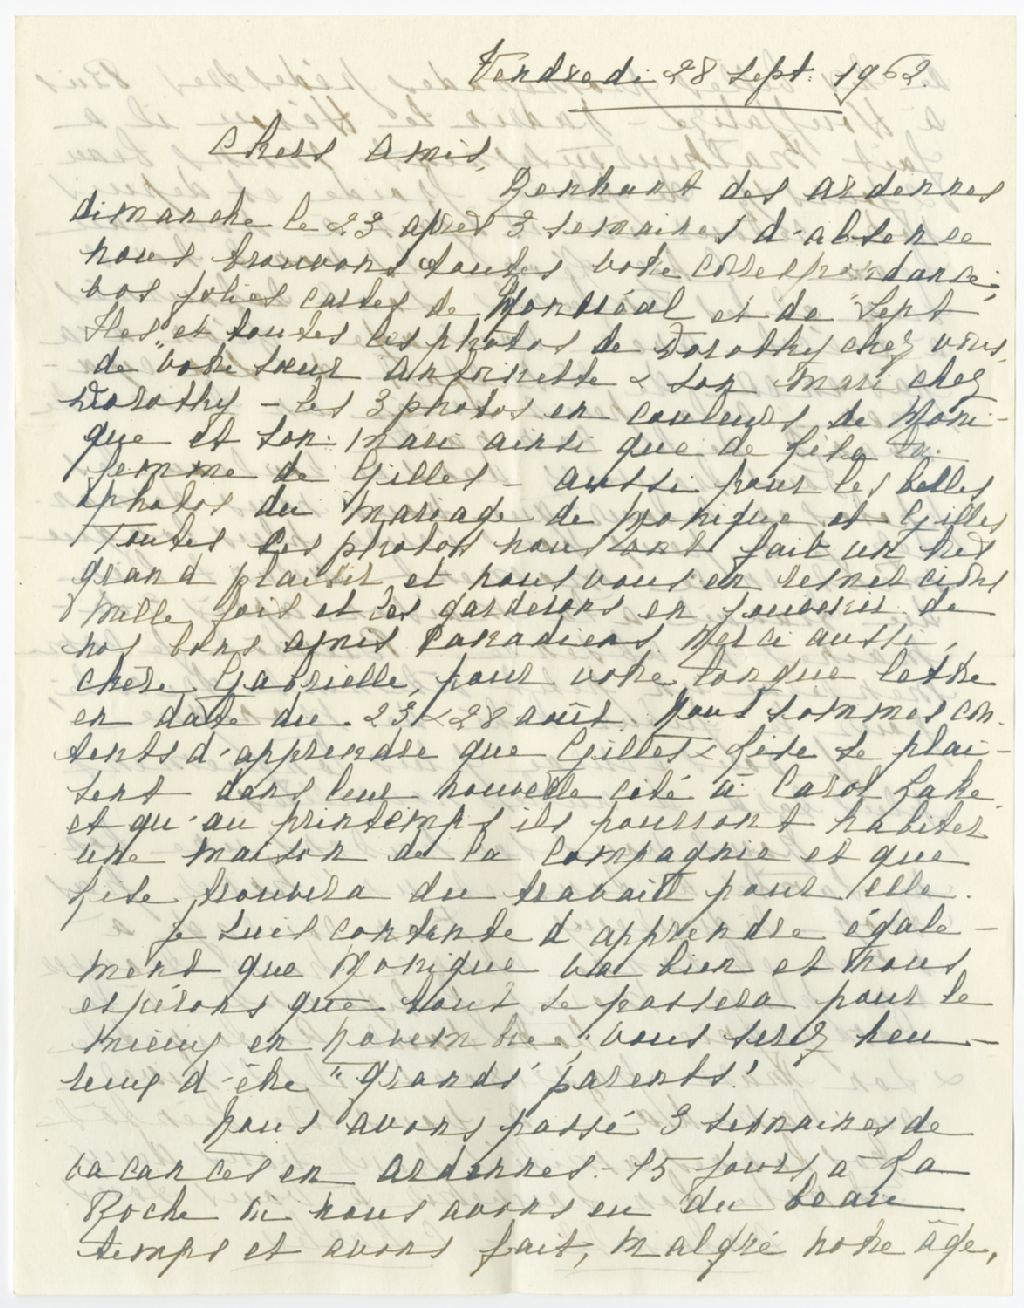 Vendredi 28 Sept. 1962.
Chers Amis,
Rentrant des Ardennes
dimanche le 23 après 3 semaines d'absence
nous trouvons toutes votre correspondance,
vos jolies cartes de Montréal et de "Sept
Iles" et toutes les photos de Dorothy chez vous,
de votre sœur Antoinette & son mari chez
Dorothy - les 3 photos en couleurs de Moni-
que et son mari ainsi que de Lise la
femme de Gilles - aussi pour les belles
photos du mariage de Monique et Gilles
Toutes ces photos nous ont fait un très
grand plaisir et nous vous en remercions
mille fois et les garderons en souvenir de
nos bons amis Canadiens. Merci aussi,
chère Gabrielle, pour votre longue lettre
en date du 23 & 28 août. Nous sommes con-
tents d'apprendre que Gilles & Lise se plai-
sent dans leur nouvelle cité à Carol Lake
et qu'au printemps ils pourront habiter
une maison de la Compagnie et que
Lise trouvera du travail pour elle.
Je suis contente d'apprendre égale-
ment que Monique va bien et nous
espérons que tout se passera pour le
mieux en novembre, vous serez heu-
reux d'être "grands parents".
Nous avons passé 3 semaines de
vacances en Ardennes - 15 jours à La
Roche où nous avons eu du beau
temps et avons fait, malgré notre âge,